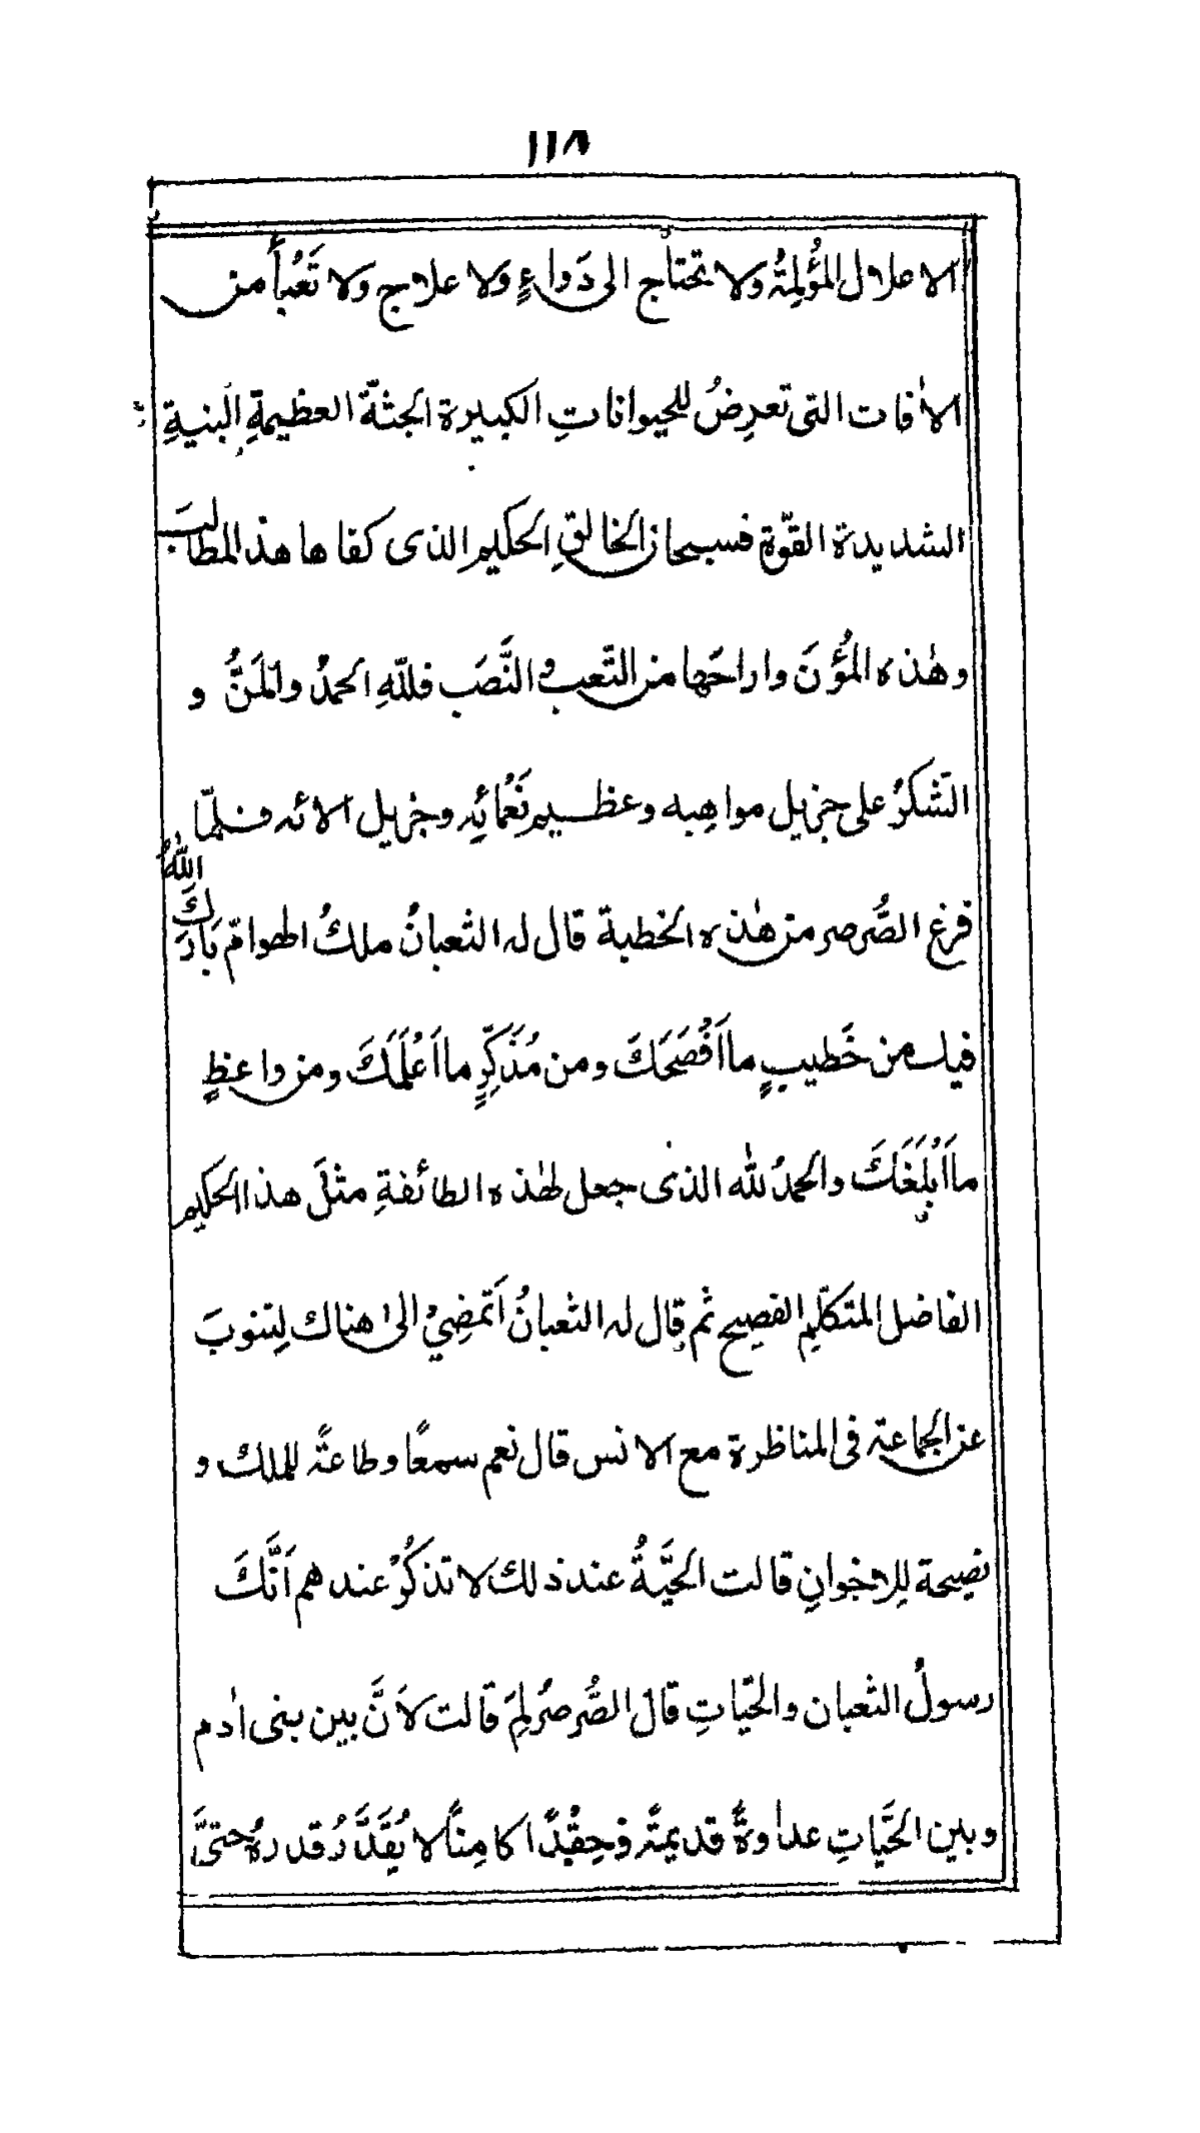 ١١٨
الاعلال المؤُلِمةُ ولا تحتاج الى دَواءٍ وَلا علاج ولا تَعُبأُ من
الاٰفات التى تعرِضُ للحيواناتِ الكبيرة الجثّة العظيمةِ البنيةِ
الشديدة القوّة فسبحان الخالقِ الحكيم الذى كفاها هذ المطالبَ
وهٰذه المُؤَنَ واراحَها من التَّعب و النَّصَب فللّهِ الحمدُ والمَنُّ و
الشكرُ على جزيل مواهِبه وعظيم نَعْمائِه وجزيل الائه فلمّا
فرغ الصُّرصر من هٰذه الخطبة قال له الثعبانُ ملكُ الهوامّ بَارَكَ اللّٰهُ
فيك من خَطيبٍ ما اَفْصَحَكَ ومن مُذَكِّرٍ ما اَعْلَمَكَ ومن واعظٍ
ما اَبْلَغَكَ والحمدُ للّٰه الذى جعل لهٰذه الطائفةِ مثلَ هذا الحكيم
الفاضل المتكلّمِ الفصيح ثم قال له الثعبانُ اَتمضِيْ الىٰ هناك لِتنوبَ
عن الجماعة فى المناظرة مع الانس قال نعم سمعًا وطاعةً للملك و
نصيحة لِلاخوانِ قالت الحيَّةُ عند ذلك لا تذكُرْ عندهم اَنَّكَ
رسولُ الثعبان والحيّاتِ قالَ الصُّرصرُ لِمَ قالت لاَنَّ بين بنى اٰدم
وبين الحَيَّاتِ عداوةً قديمةً وحِقْدًا كامِنًا لا يُقَدَّرُ قدرهُ حتىَّ